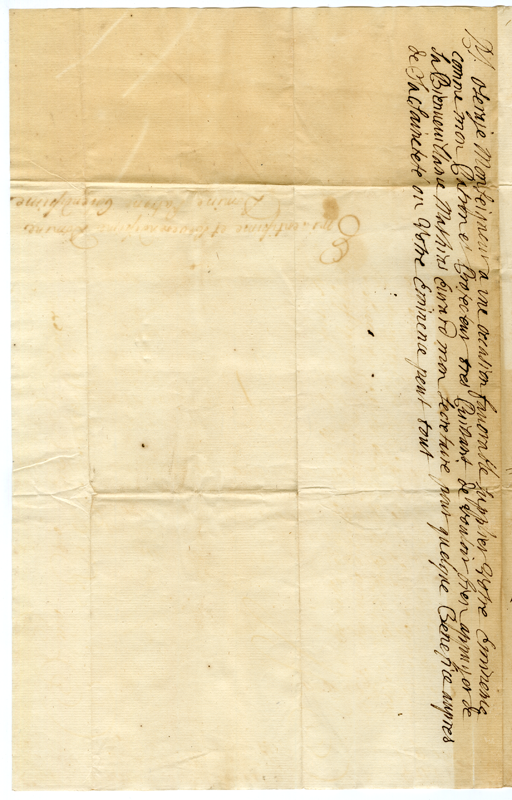 oserije Monseigneur a une occasion favorable supplier Votre Eminence
comme mon Patron et Protecteur tres Puissant de vouloir bien appuyer de
sa Bienveillance Mathias Evrard mon secretaire pour quelque Benefice aupres
de Sa Sainteté ou Votre Eminence peut tout
Eminentissime et Domine
Domine Patrone